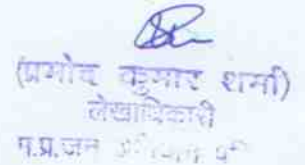 (प्रमोद कुमार शर्मा)
लेखाधिकारी
म.प्र.जन